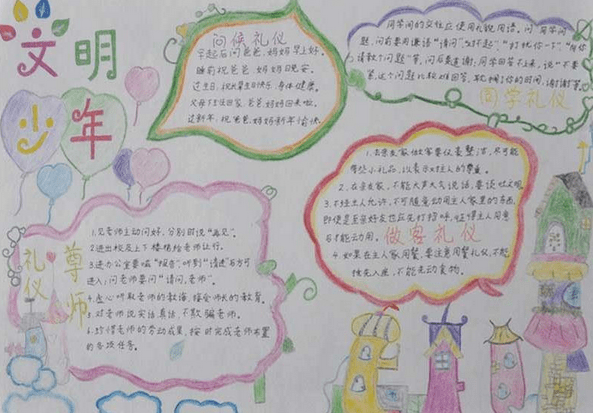 文明
少年
问候礼仪
早起后问爸爸、妈妈早上好。
睡前祝爸爸、妈妈晚安。
过生日,祝生日快乐,身体健康。
父母下班回家,爸爸、妈妈回来啦。
过新年,祝爸爸、妈妈新年愉快。
同学间的交往应使用礼貌用语。问同学问
题,问前要用谦语“请问”、“对不起”、“打扰你一下”、
请教个问题”等,问后要道谢,同学回答不上来,说“不要
紧,这个问题比较难回答,耽搁了你的时间,谢谢”等。
同学礼仪
1.去亲友家做客要仪表整洁,尽可能
带些小礼品,以表示对主人的尊重。
2.在亲友家,不能大声大气说话,要谈吐文明。
3.不经主人允许,不可随意动用主人家里的东西,
即使是至亲好友也应先打招呼,征得主人同意
后才能动用。
做客礼仪
4.如果在主人家用餐,要注意用餐礼仪,不能
抢先入座,不能先动食物。
尊师
礼仪
1.见老师主动问好,分别时说“再见”。
2.进出校及上下楼梯给老师让行。
3.进办公室要喊“报告”,听到“请进”后方可
进入;问老师要问“请问,老师”。
4.虚心听取老师的教诲,接受师长的教育。
5.对老师说实话、真话,不欺骗老师。
6.珍惜老师的劳动成果,按时完成老师布置
的各项任务。